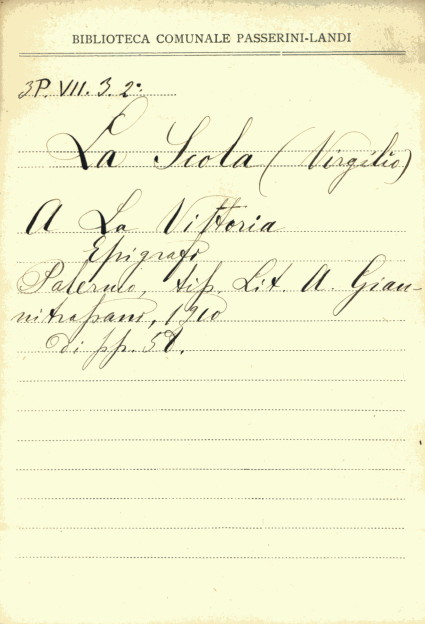 BIBLIOTECA COMUNALE PASSERINI-LANDI
3P. VII. 3. 2º.
La Scola (Virgilio)
A La Vittoria
Epigrafi
Palermo, tip. Lit. A. Gian-
nitrapani, 1910
di pp.